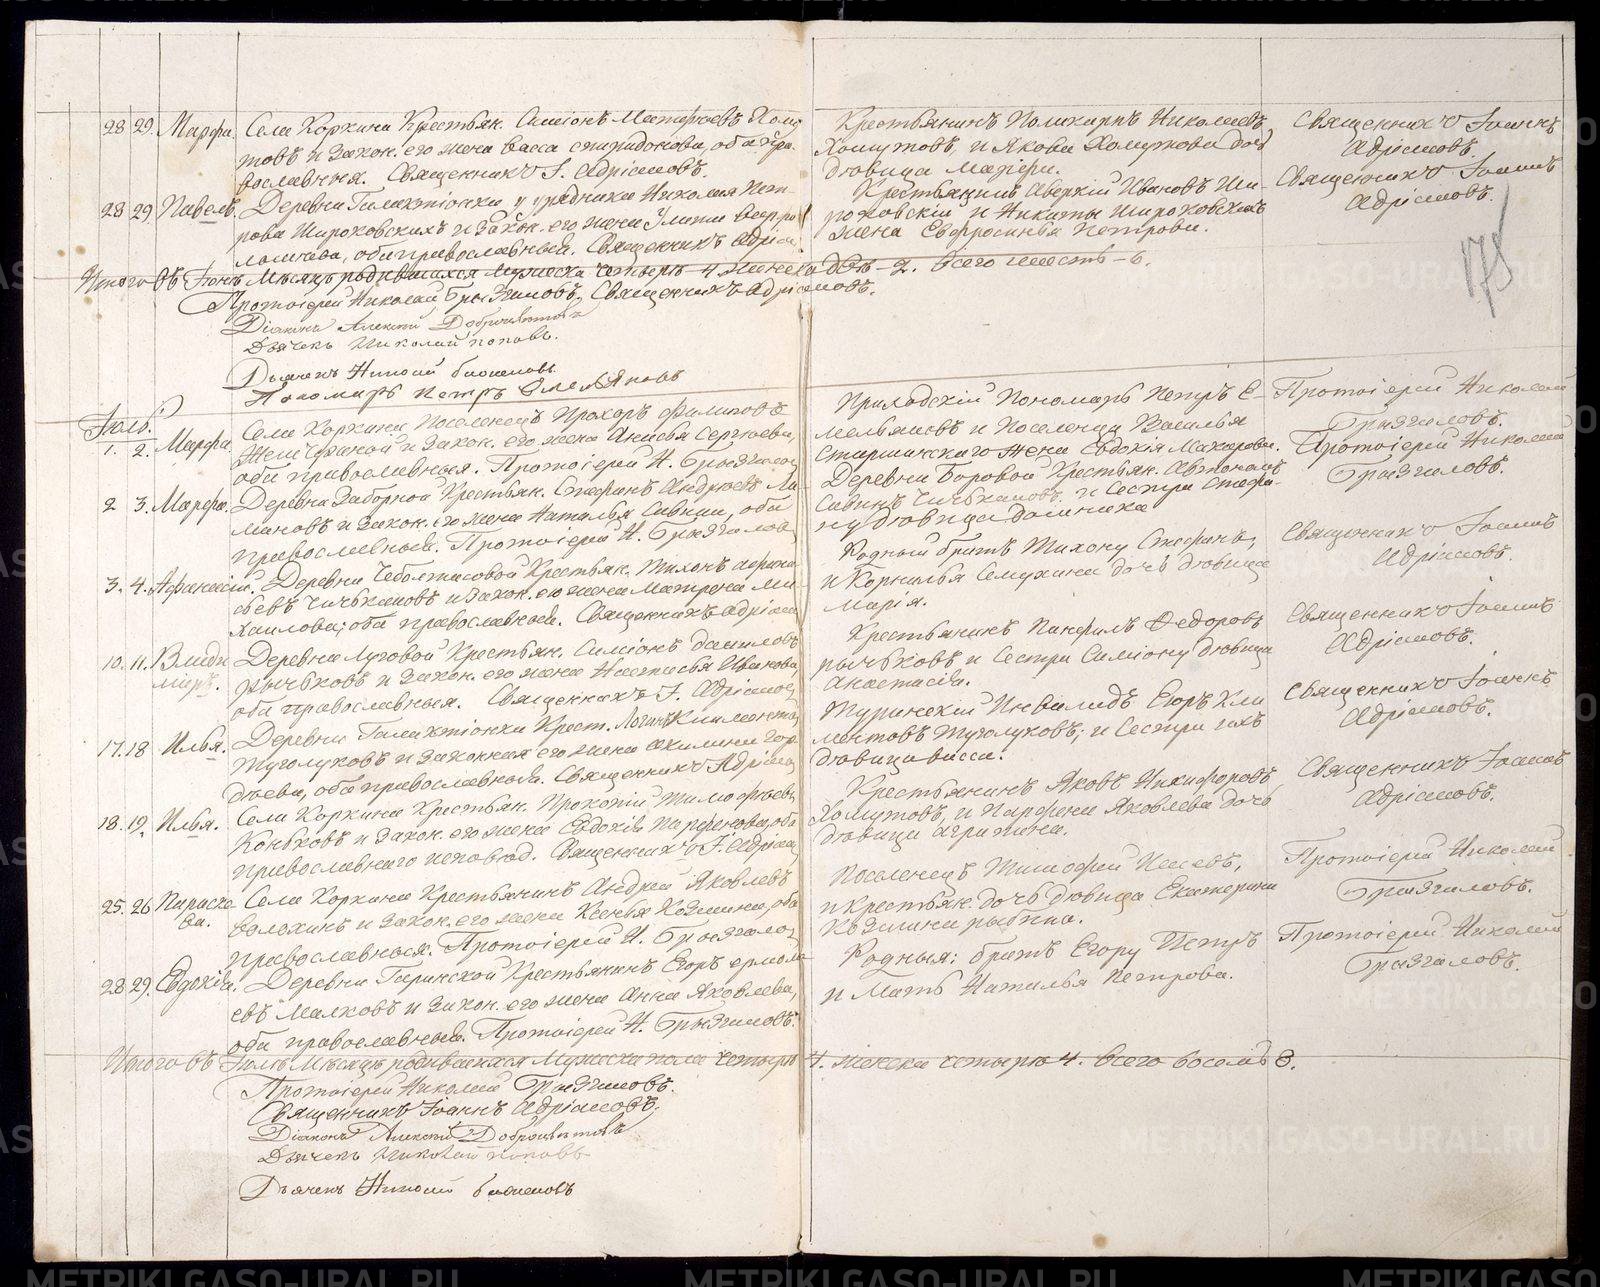 28 29. Марфа. Села Коркина Крестьян. Симіонъ Матфѣевъ Хому-
товъ и Закон. его жена Васса Спиридонова, оба пра-
вославныя. Священникъ І. Адріановъ.
Крестьянинъ Поликарпъ Николаевъ
Хомутовъ, и Якова Хомутова дочь
дѣвица
Священникъ Іоаннъ
Адріановъ.
28 29 Павелъ. Деревни Галактіонки урядника Николая Пет-
рова Широковскихъ и Закон. его жена Улита
оба православныя. Священникъ Адріан.
Крестьянинъ Аверкій Ивановъ Ши-
роковскій и Никиты Широковскихъ
жена Евфросинья Петрова.
Священникъ Іоаннъ
Адріановъ.
178
Итого въ Іюнѣ Мѣсяцѣ родившихся Мужеска четыре 4. женска двѣ - 2. всего шесть - 6.
Протоіерей Николай Брызгаловъ. Священникъ Адріановъ.
Діаконъ Алексѣй Доброцвѣтовъ
Дьячекъ Николай Поповъ.
Дьячекъ
Пономарь Петръ Омельяновъ
Іюль.
1. 2. Марфа. Села Коркина Поселенецъ Прохоръ Филиповъ
и Закон. его жена Анисья Сергѣева,
оба православныя. Протоіерей Н. Брызгалов
Приходскій Пономарь Петръ Е-
мельяновъ и Поселенца Василья
Старшинскаго жена Евдокія Макарова.
Протоіерей Николай
Брызгаловъ.
2 3. Марфа. Деревни Заборной Крестьян. Стефанъ Андрѣевъ
и Закон. его жена Наталья Савина, оба
православныя. Протоіерей Н. Брызгалов
Деревни Боровой Крестьян. Автономъ
Савинъ Чичкановъ. и Сестра Стефа-
ну дѣвица Домника
Протоіерей Николай
Брызгаловъ.
3. 4. Афанасій. Деревни Чеболтасовой Крестьян. Тихонъ Афана-
сьевъ Чичкановъ и Закон. его жена Матрона Ми-
хаилова; оба православныя. Священникъ Адріан
Родный братъ Тихону Стефанъ,
и Корнилья Семухина дочь дѣвица
Марія.
Священникъ Іоаннъ
Адріановъ.
10. 11. Влади-
миръ. Деревни Луговой Крестьян. Симіонъ Даниловъ
Рычковъ и Закон. его жена Настасья Иванова,
оба православныя. Священникъ І. Адріанов
Крестьянинъ Панфилъ Федоровъ
Рычковъ, и Сестра Симіону дѣвица
Анастасія.
Священникъ Іоаннъ
Адріановъ.
17. 18 Илья. Деревни Галактіонки Крест. Логинъ Климентов
Туголуковъ и Законная его жена Акилина Гор-
дѣева, оба православныя. Священникъ Адріан
Туринскій Инвалидъ Егоръ Кли-
ментовъ Туголуковъ; и Сестра ихъ
дѣвица Васса.
Священникъ Іоаннъ
Адріановъ.
18. 19. Илья. Села Коркина Крестьян. Прокопій Тимофѣевъ
Коньковъ и Закон. его жена Евдокія Парфенова, оба
православнаго исповѣд. Священникъ І. Адріан
Крестьянинъ Яковъ Никифоровъ
Хомутовъ, и Парфена Яковлева дочь
дѣвица Агрипина.
Священникъ Іоаннъ
Адріановъ.
25. 26 Параске-
ва. Села Коркина Крестьянинъ Андрей Яковлевъ
и Закон. его жена Ксенья Козмина, оба
православныя. Протоіерей Н. Брызгалов
Поселенецъ Тимофей Исаевъ,
и Крестьян. дочь дѣвица Екатерина
Козмина Рыбина.
Протоіерей Николай
Брызгаловъ.
28 29. Евдокія. Деревни Гаринской Крестьянинъ Егоръ Ермола-
евъ Малковъ и Закон. его жена Анна Яковлева,
оба православныя. Протоіерей Н. Брызгаловъ.
Родныя: братъ Егору Петръ
и Мать Наталья Петрова.
Протоіерей Николай
Брызгаловъ.
Итого въ Іюлѣ Мѣсяцѣ родившихся Мужеска пола четыре 4. женска четыре 4. всего восемь 8.
Протоіерей Николай Брызгаловъ.
Священникъ Іоаннъ Адріановъ.
Діаконъ Алексѣй Доброцвѣтовъ
Дьячекъ Николай Поповъ
Дьячекъ
METRIKI.GASO-URAL.RU